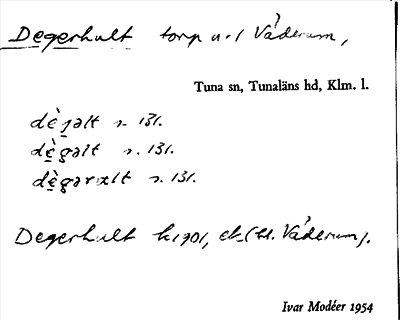 Degerhult torp u. / Våderum,
Tuna sn, Tunaläns hd, Klm. l.
s. 131.
dègəlt s. 131.
s. 131.
Degerhult k1901, ek. (bl. Våderum).
Ivar Modéer 1954